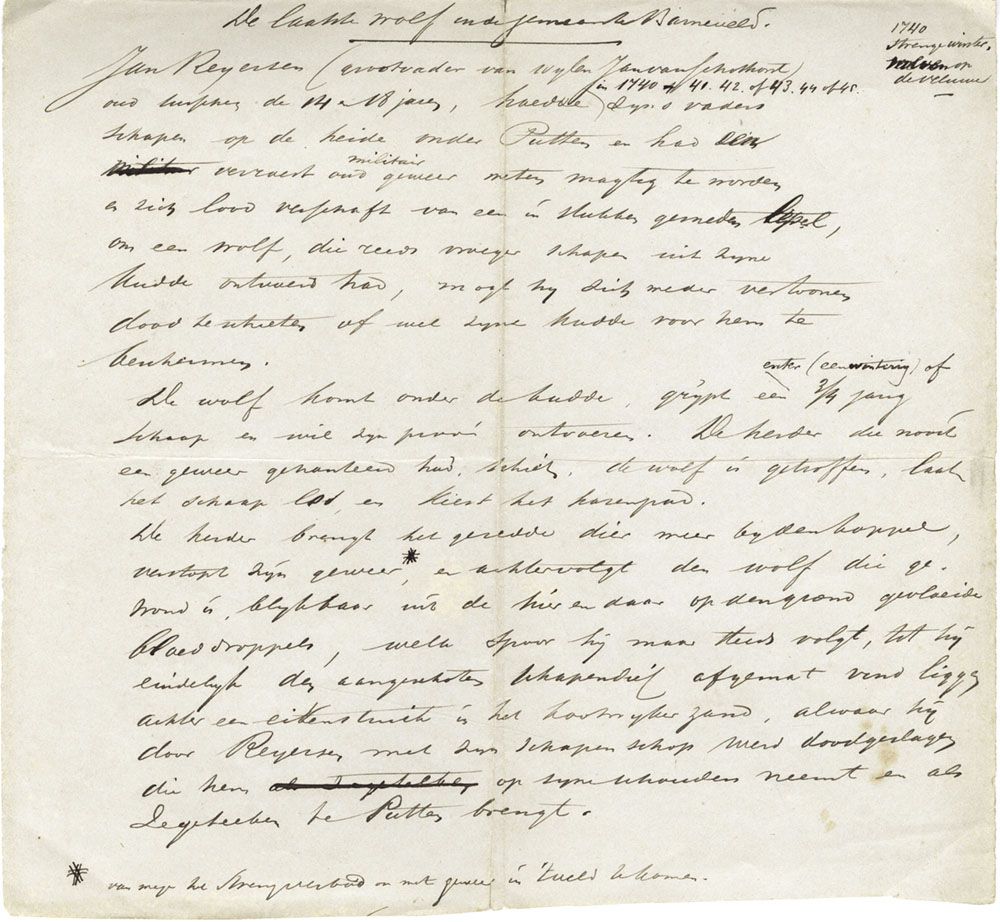 De laatste wolf in de gemeente Barneveld.
1740
strenge winter.
wolven op
de veluwe
Jan Reyersen (grootvader van wylen Jan van Schothorst)
in 1740 of 41. 42. of 43. 44 of 45.
oud de 14 a 18 jaren, hoedde zyn's vaders
schapen op de heide onder Putten en had een
militair
verroest oud geweer weten magtig te worden
en zich lood verschaft van een in stukken gesneden lepel,
om een wolf, die reeds vroeger schapen uit zyne
kudde ontvoerd had, mogt hy zich weder vertoonen
dood te schieten of wel zyne kudde voor hem te
beschermen.
enter (eenwintering) of
De wolf komt onder de kudde, grypt een 3/4 jarig
schaap en wil zyn prooi ontvoeren. De herder die nooit
een geweer gehanteerd had, schiet, de wolf is getroffen, laat
het schaap los, en kiest het hazenpad.
De herder brengt het geredde dier weer by den koppel,
verstopt zyn geweer *, en achtervolgt den wolf die ge-
wond is, blykbaar uit de hier en daar op den grond gevloeide
bloeddroppels, welk spoor hy maar steeds volgt, tot hy
eindelyk den aangeschoten schapendief afgemat vind liggen
achter een eikenstruik in het kootwyker zand, alwaar hy
door Reyersen met zyn schapenschop werd doodgeslagen
die hem als zegeteeken op zyne schouders neemt en als
Zegeteeken te Putten brengt.
* van wege het streng verbod om met geweer in 't veld te komen.